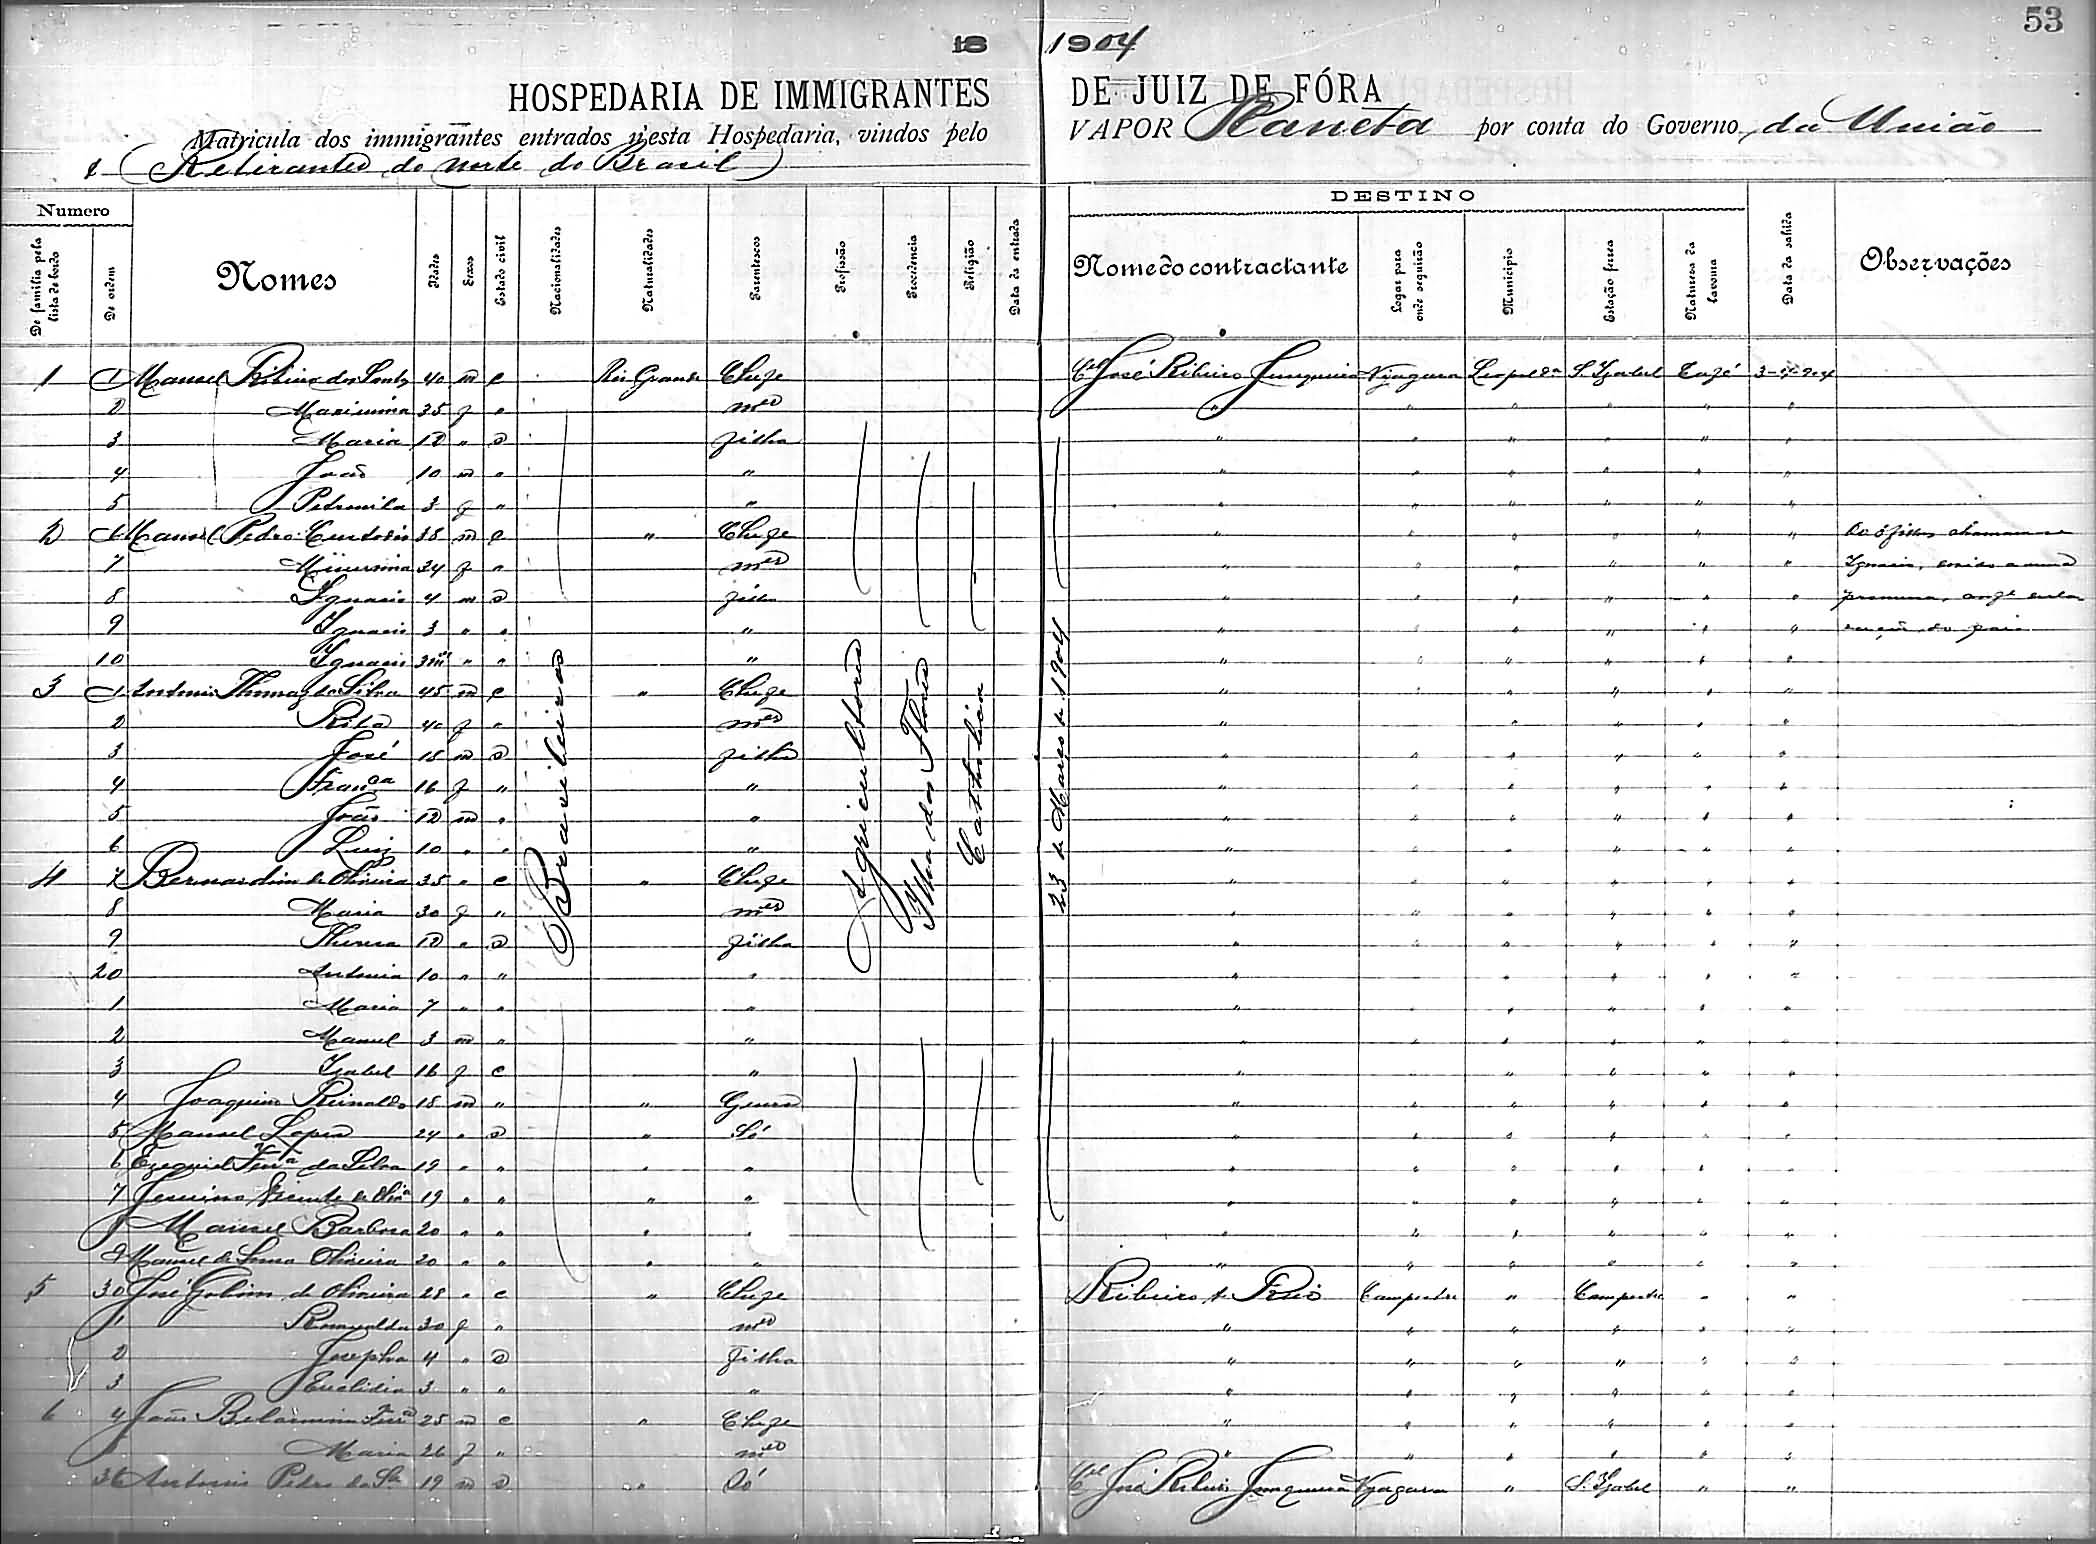 53
18 1904
HOSPEDARIA DE IMMIGRANTES DE JUIZ DE FÓRA
Matricula dos immigrantes entrados n'esta Hospedaria, vindos pelo VAPOR Planeta por conta do Governo da União
(Retirantes do norte do Brasil)
Numero DESTINO
De familia pela lista de bordo De ordem Nomes Idades Sexos Estado civil Nacionalidades Naturalidades Parentescos Profissão Procedencia Religião Data da entrada Nome do contractante Logar para onde seguirão Municipio Estação ferrea Natureza da lavoura Data da sahida Observações
1 1 Manuel Ribeiro dos Santos 40 m c Rio Grande Chefe Cel José Ribeiro Junqueira Leopolda S. Izabel Café 3-4-904
2 35 f " mer " " " " " "
3 Maria 12 " s filha " " " " " "
4 João 10 m " " " " " " " "
5 Petronila 3 f " " " " " " " "
2 6 Manoel Pedro Custodio 38 m c " Chefe " " " " " " Os 3 filhos chamam-se
7 Minervina 24 f " mer " " " " " " Ignacio,
8 Ignacio 4 m s filho " " " " " "
9 Ignacio 3 " " " " " " " " " do pai
10 Ignacio 3m " " " " " " " " "
3 1 Antonio Thomaz da Silva 45 m c " Chefe " " " " " "
2 Rita 40 f " mer " " " " "
3 José 18 m s filho " " " " " "
4 Franca 16 f " " " " " " " "
5 João 12 m " " " " " " " "
6 Luiz 10 " " " " " " " " "
4 7 Bernardino de Oliveira 35 " c " Chefe " " " " " "
8 Maria 30 f " mer " " " " " "
9 Thereza 12 " s filha " " " " " "
20 Antonia 10 " " " " " " " "
1 Maria 7 " " " " " " " "
2 Manuel 3 m " " " " " " "
3 Izabel 16 f c " " " " " " "
4 Joaquim Reinaldo 18 m " " Genro " " " " " "
5 Manuel Lopes 24 " s " Só " " " " " "
6 Ezequiel Ferra da Silva 19 " " " " " " " " " "
7 Vicente de Olia 19 " " " " " " " " " "
8 Manuel Barbosa 20 " " " " " " " " " "
9 Manuel de Oliveira 20 " " " " " " " " " "
5 30 José de Oliveira 28 " c " Chefe Ribeiro & Reis Campestre " Campestre " "
1 Romualda 30 f " mer " " " " " "
2 Josepha 4 " s Filha " " " " " "
3 Euclidia 3 " " " " " " " " "
6 4 João Belarmino Ferra 25 m c " Chefe " " " " " "
5 Maria 26 f " mer " " " " " "
36 Antonio Pedro da Sa 19 m s " Só Cel José Ribeiro Junqueira " S. Izabel " "
Brasileiros
Agricultores
Ilha das Flores
Catholica
23 de Março de 1904